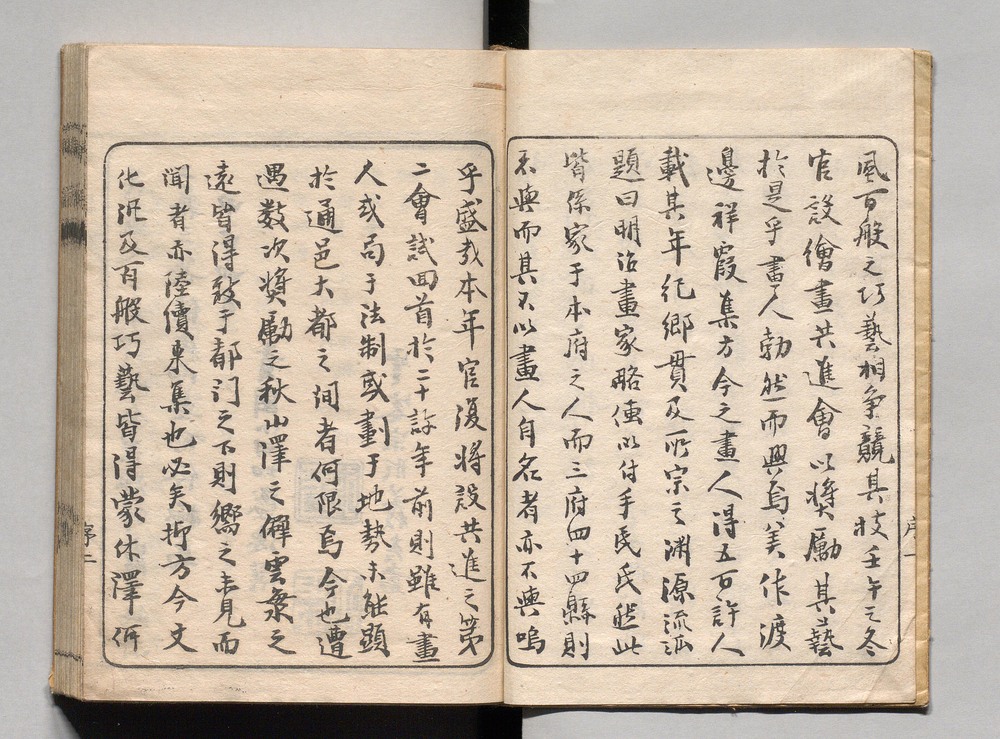 風百般之巧藝相爭競其技壬午之冬
官設繪畫共進會以獎勵其藝
於是乎畫人勃然而興焉美作渡
邊祥霞集方今之畫人得五百許人
載其年紀鄉貫及所宗之淵源流派
題曰明治畫家略傳以付手民氏然此
皆係家于本府之人而三府四十四縣則
不與而其不以畫人自名者亦不與嗚
序一
乎盛哉本年官復將設共進之第
二會試回首於二十許年前則雖有畫
人或局于法制或劃于地勢未能顯
於通邑大都之間者何限焉今也遭
遇數次獎勵之秋山澤之僻雲衆之
遠皆得致于都門之下則嚮之未見而
聞者亦陸續東集也必矣抑方今文
化汎及百般巧藝皆得蒙休澤所
序二